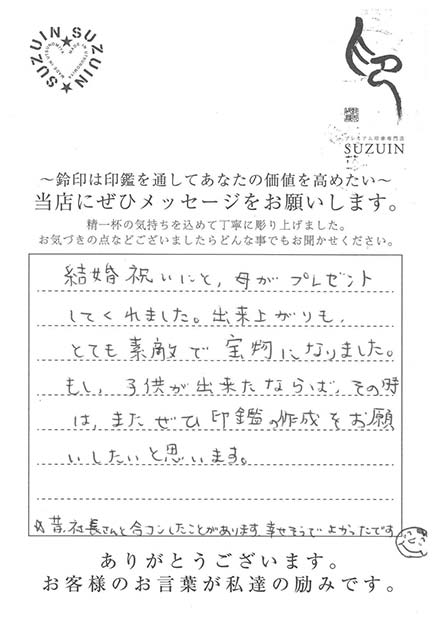 SUZUIN★SUZUIN★
MADE IN UTSUNOMIYA
印
プレミアム印章専門店
SUZUIN
～鈴印は印鑑を通してあなたの価値を高めたい～
当店にぜひメッセージをお願いします。
精一杯の気持ちを込めて丁寧に彫り上げました。
お気づきの点などございましたらどんな事でもお聞かせください。
結婚祝いにと、母がプレゼント
してくれました。出来上がりも、
とても素敵で宝物になりました。
もし、子供が出来たならば、その時
は、またぜひ印鑑の作成をお願
いしたいと思います。
昔、社長さんと合コンしたことがあります。幸せそうでよかったです
ありがとうございます。
お客様のお言葉が私達の励みです。